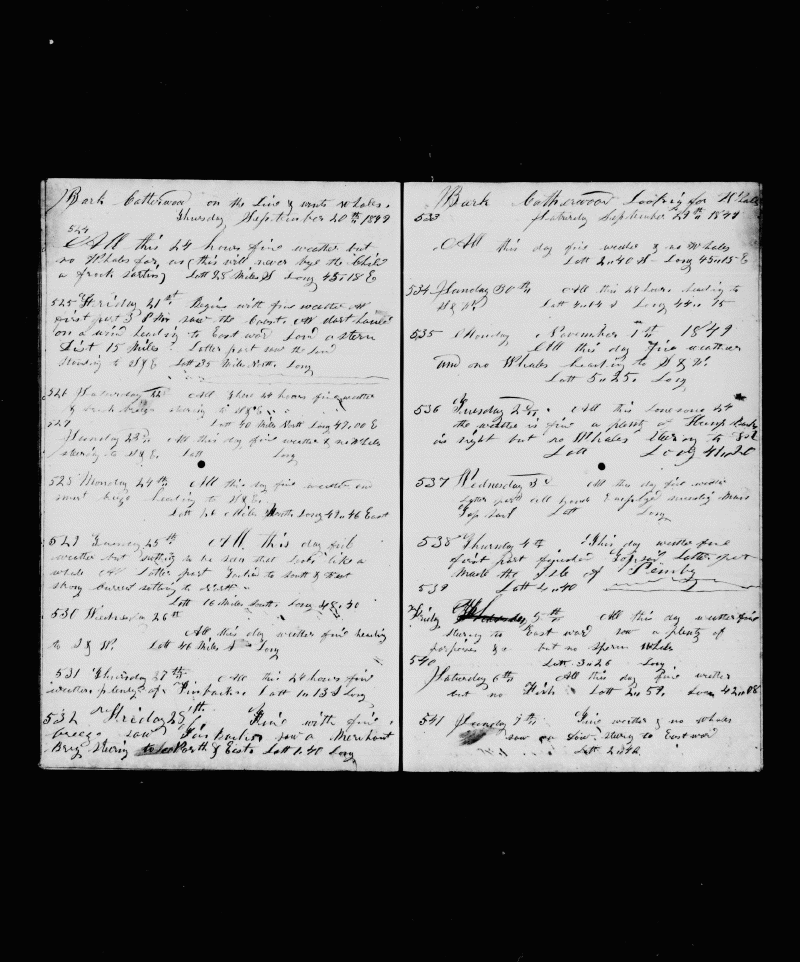 Bark Catherwood on the Line & wants whales.
Thursday September 20th 1849
524
All this 24 hours fine weather but
no Whales for, as (this will never bye the Child
a frock sartin) Latt 28 Miles S Long 45..18 E
525 Friday 21st Begins with fine weather At
first part 3 PM saw the Coast. At dark tacked
on a wind heading to East ward Land a stern
Dist 15 Miles Latter part saw the land
standing to S & E Latt 35 Miles North, Long
526 Saturday 22 All these 24 hours fine weather
& fresh breeze steering to S & E
Latt 40 Miles North Long 47..00 E
527
Sunday 23d All this day fine weather & no Whales
steering to S & E. Latt Long
528 Monday 24th All this day fine weather and
smart breeze heading to S & E.
Latt 46 Miles North Long 47..46 East
529 Tuesday 25th All this day fine
weather but nothing to be seen that looks like a
whale At Latter part Tacked to South & East
strong current setting to North
Latt 16 Miles South, Long 48..40
530 Wednesday 26th
All this day weather fine heading
to S & W. Latt 46 Miles S Long
531 Thursday 27th All this 24 hours fine
weather plenty of Finbacks Latt 1..13 S Long
532 Friday 28th Fine with fine
breeze saw Finbacks saw a Merchant
Brig steering to North & East Latt 1..40 Long
Bark Catherwood Looking for Whales
533 Saturday September 29th 1849
All this day fine weather & no Whales
Latt 2..40 S Long 45..15 E
534 Sunday 30th All this 24 hours heading to
S & W. Latt 4..14 S Long 44..15
535 Monday November 1th 1849
All this day fine weather
and no Whales heading to S & W.
Latt 5..25. Long
536 Tuesday 2d All this lonesome 24
the weather is fine a plenty of Hump Backs
in sight but no Whales stering to
Latt Long 41..20
537 Wednesday 3d All this day fine weather
Latter part all hands Employed
Top sail Latt Long
538 Thursday 4th This day weather fine
first part finished Topsail latter part
made the Isle of Pemby
539 Latt 4..40
Friday 5th All this day weather fine
stering to East ward saw a plenty of
porpoises &c but no Sperm Whales
540 Latt. 3..26 Long
Saturday 6th All this day fine weather
but no Fish Latt 2..59. Long 42..08
541 Sunday 7th Fine weather & no Whales
saw a Sow. stering to East ward
Latt 2..42